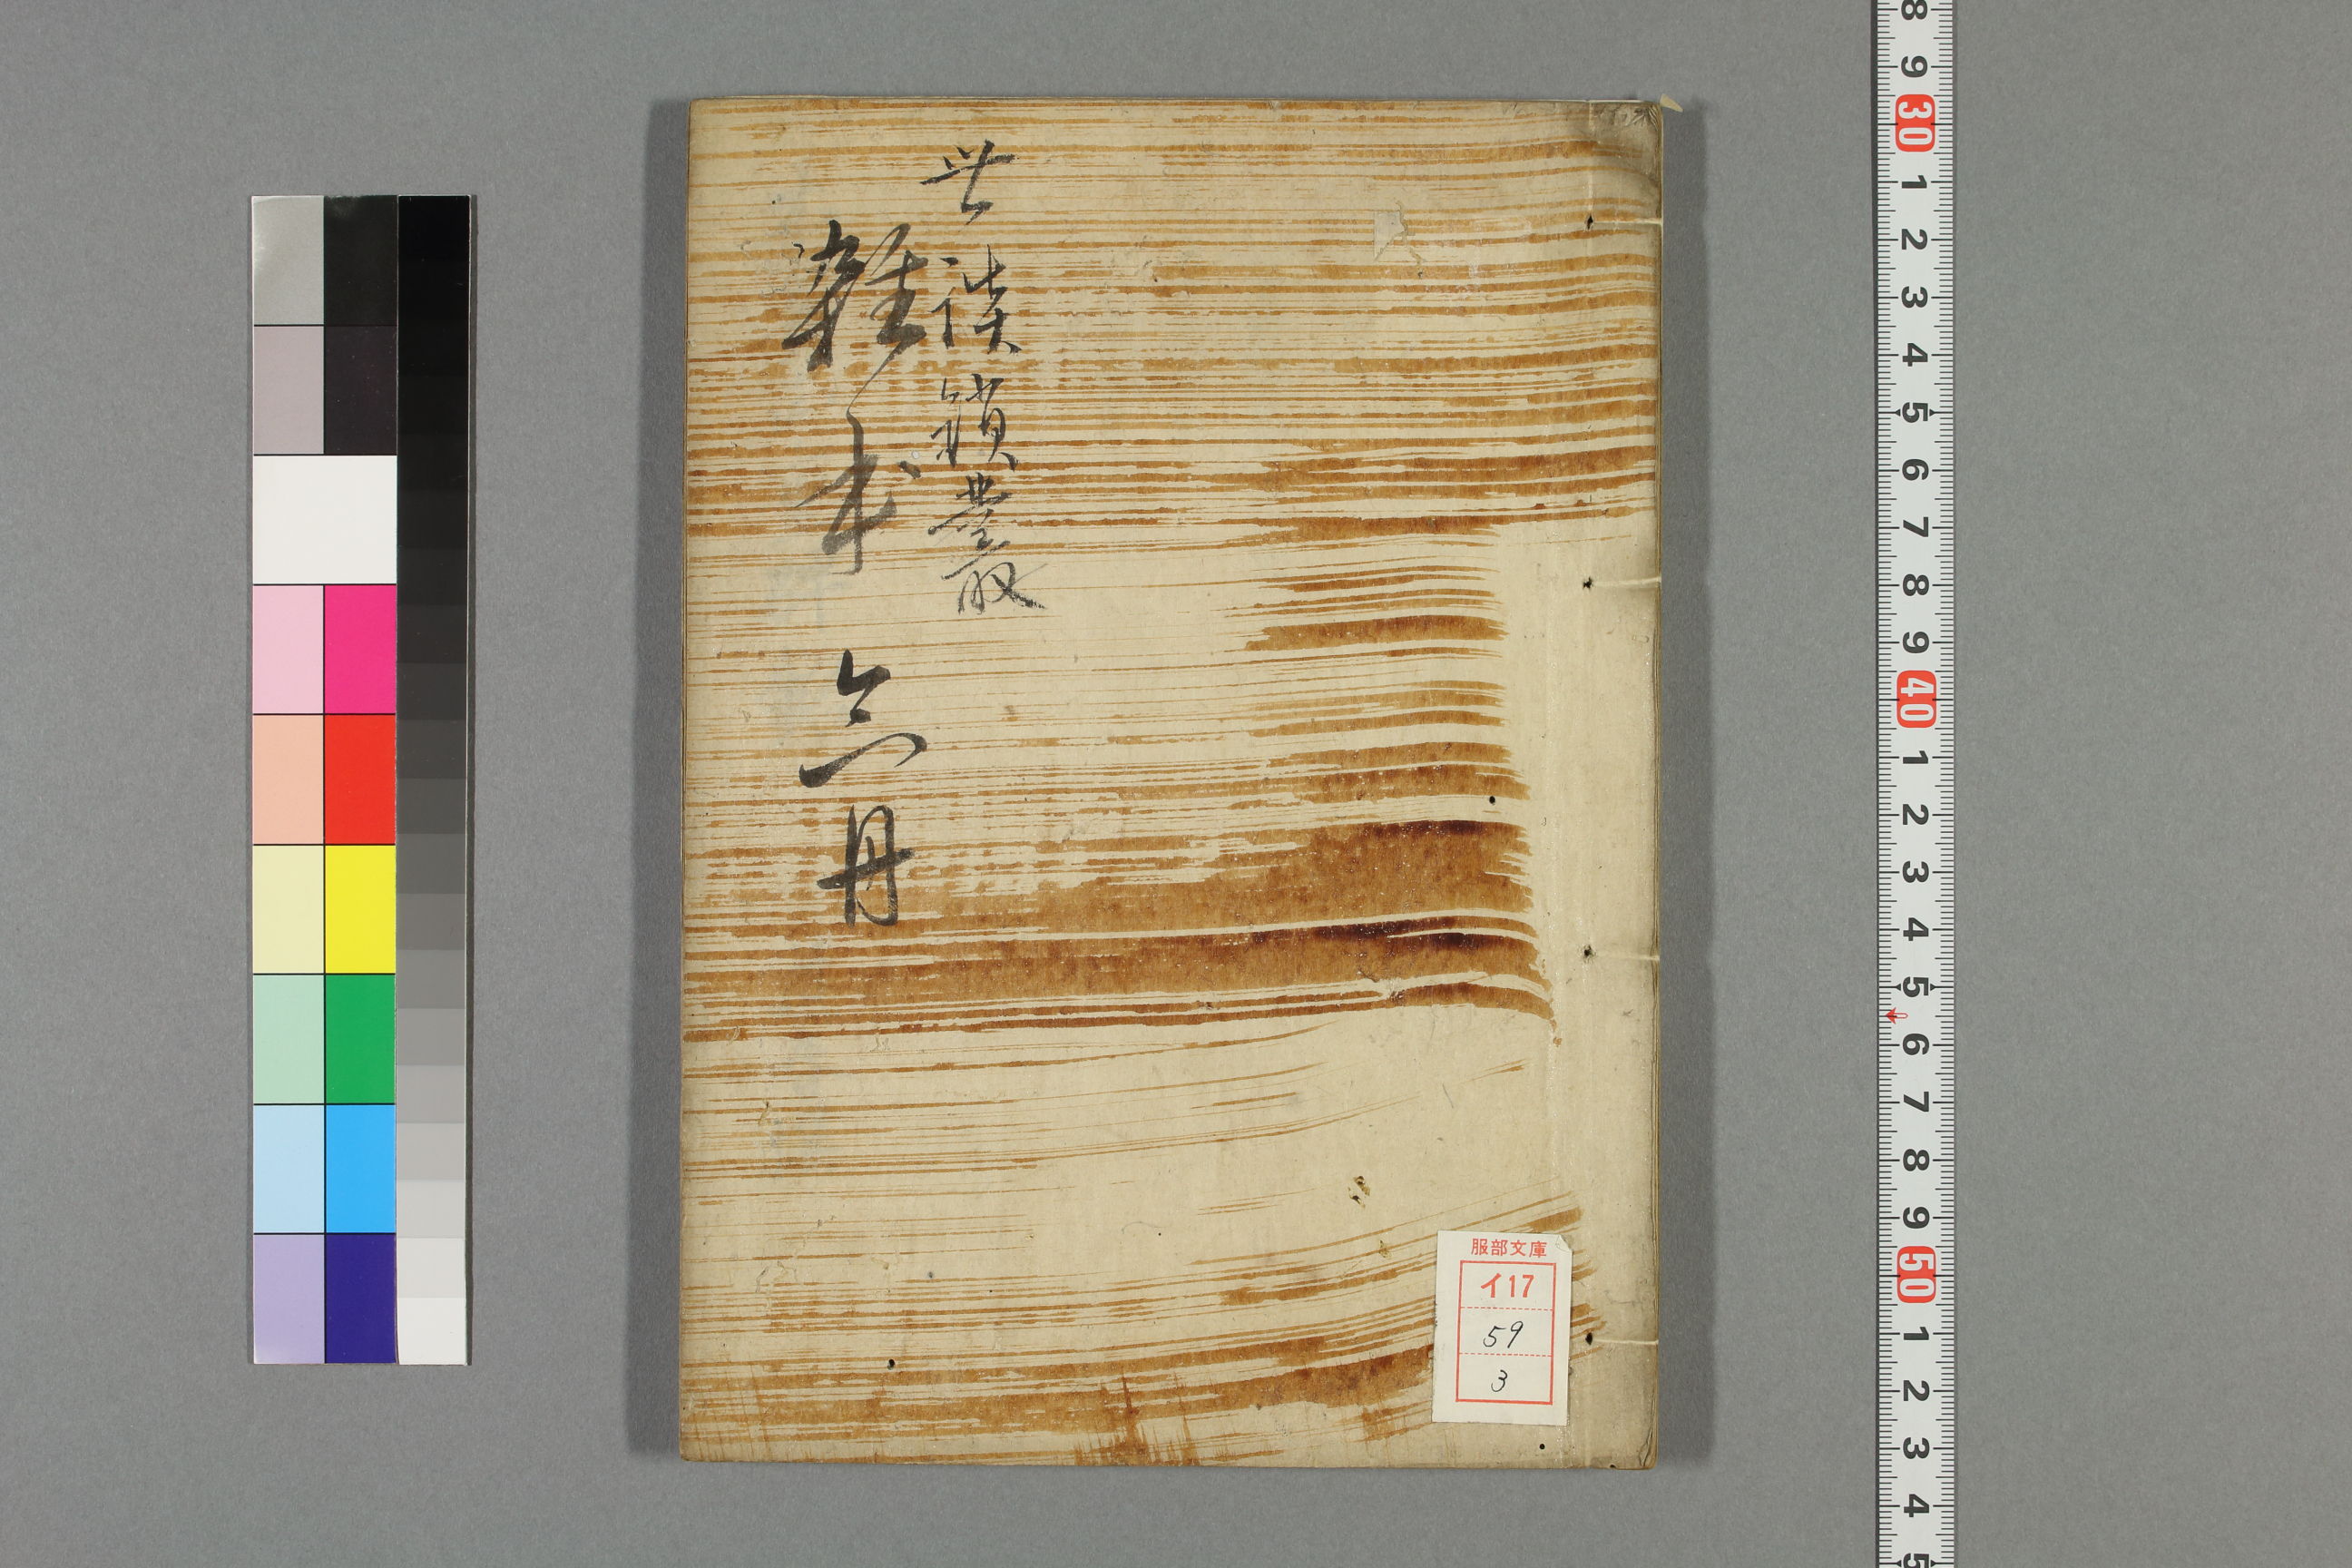 世談鎖叢
雜木
六冊
服部文庫
イ17
59
3
8
9
30
1
2
3
4
5
6
7
8
9
40
1
2
3
4
5
6
7
8
9
50
1
2
3
4
5